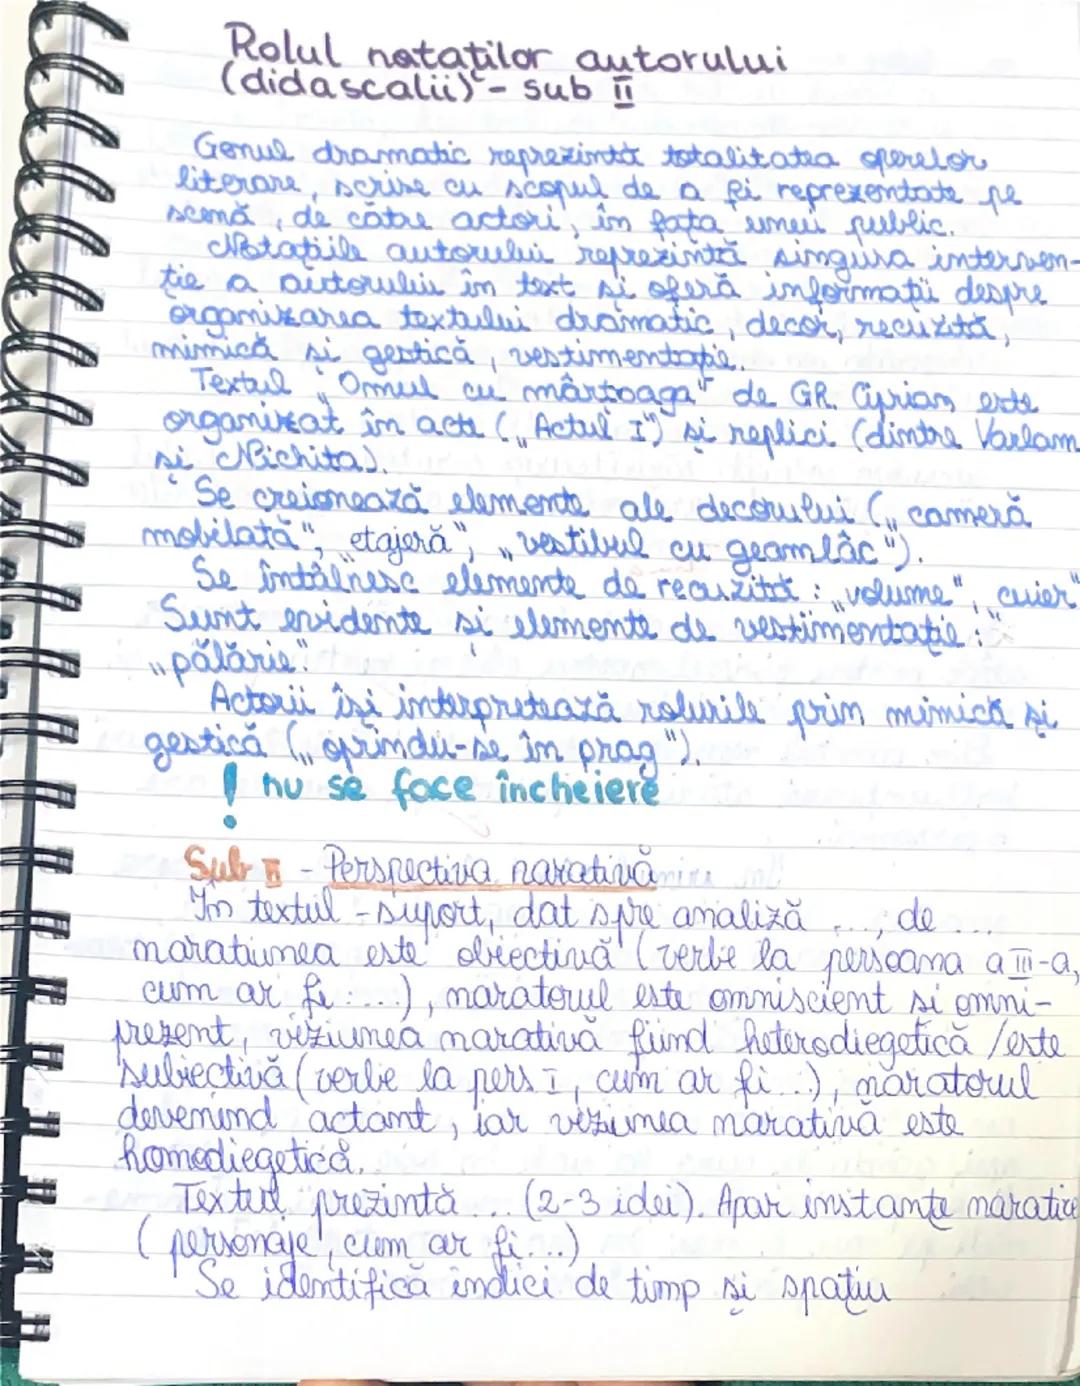 Rolul notaților autorului
(didascalii) - sub II
Genul dramatic reprezintă totalitatea operelor
literare, scrise cu scopul de a fi reprezentate pe
scenă, de către actori, în fața unui public.
Notațiile autorului reprezintă singura interven-
ție a autorului în text și oferă informații despre
organizarea textului dramatic, decor, recuzită,
mimică și gestică, vestimentație.
Textul „Omul cu mârțoaga" de GR. Ciprian este
organizat în acte („Actul I") și replici (dintre Varlam
și Nichita).
Se creionează elemente ale decorului („cameră
mobilată", „etajeră", „vestibul cu geamlâc").
Se întâlnesc elemente de recuzită: „volume", „cuier"
Sunt evidente și elemente de vestimentație:
„pălărie".
Actorii își interpretează rolurile prin mimică și
gestică („oprindu-se în prag").
! nu se face încheiere
Sub II - Perspectiva narativă
În textul-suport, dat spre analiză ..., de ...
narațiunea este obiectivă (verbe la persoana a III-a,
cum ar fi ....), naratorul este omniscient și omni-
prezent, viziunea narativă fiind heterodiegetică /este
subiectivă (verbe la pers I, cum ar fi ...), naratorul
devenind actant, iar viziunea narativă este
homodiegetică.
Textul prezintă ... (2-3 idei). Apar instanțe narative
(personaje, cum ar fi ...)
Se identifică indici de timp și spațiu